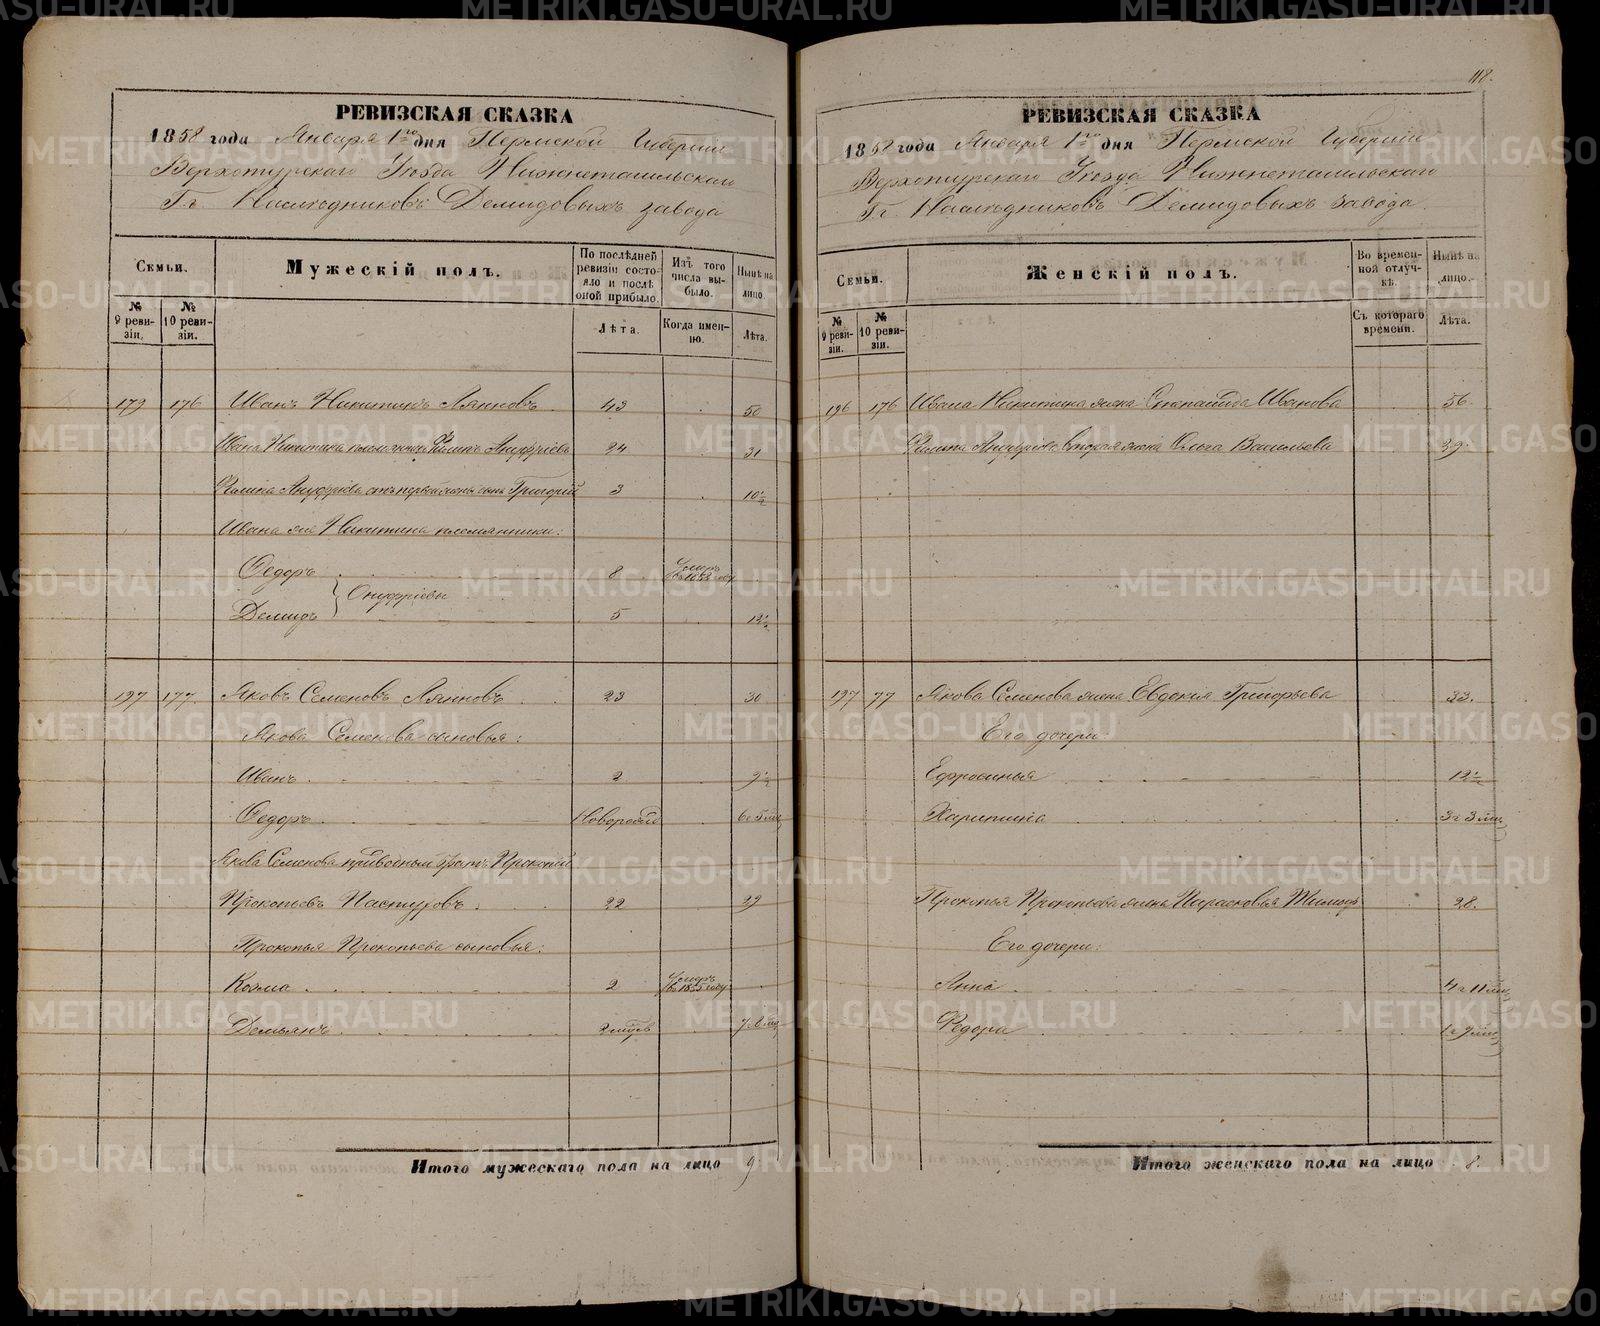 РЕВИЗСКАЯ СКАЗКА
1858 года Января 1го дня Пермской Губерніи
Верхотурскаго Уѣзда Нижнетагильскаго
Г.г. Наслѣдниковъ Демидовыхъ завода
Семьи.
Мужескій полъ.
По послѣдней ревизіи состояло и послѣ оной прибыло.
Изъ того числа выбыло.
Нынѣ на лицо.
№ 9 ревизіи.
№ 10 ревизіи.
Лѣта.
Когда именно.
Лѣта.
179 176 Иванъ Никитинъ Ляпновъ 43 50
Ивана Никитина племянникъ Филипъ Ануфріевъ 24 31
Филипа Ануфріева отъ первой жены сынъ Григорій 3 10½
Ивана же Никитина племянники:
Федоръ 8 Умеръ въ 1853 году
Онуфріевы
Демидъ 5 12½
197 177 Яковъ Семеновъ Ляпновъ 23 30
Якова Семенова сыновья:
Иванъ 2 9½
Федоръ Новорожд 6 г 5 мц
Якова Семенова приводный братъ Прокопій
Прокопьевъ Пастуховъ 22 29
Прокопья Прокопьева сыновья:
Козма 2 Умеръ въ 1855 году
Демьянъ 7 г 8 мц
Итого мужескаго пола на лицо 9
118.
РЕВИЗСКАЯ СКАЗКА
1858 года Января 1го дня Пермской Губерніи
Верхотурскаго Уѣзда Нижнетагильскаго
Г.г. Наслѣдниковъ Демидовыхъ завода.
Семьи.
Женскій полъ.
Во временной отлучкѣ.
Нынѣ на лицо.
№ 9 ревизіи.
№ 10 ревизіи.
Съ котораго времени.
Лѣта.
196 176 Ивана Никитина жена Степанида Иванова 56.
Филипа Ануфріева вторая жена Ольга Васильева 29.
197 77 Якова Семенова жена Евдокия Григорьева 33.
Его дочери
Ефросинья 12½
Харитина 3 г 3 мц
Прокопья Прокопьева жена Парасковья Тимоф 28.
Его дочери:
Анна 4 г 11 мц
Федора 1 г 9 мц
Итого женскаго пола на лицо 8.
METRIKI.GASO-URAL.RU